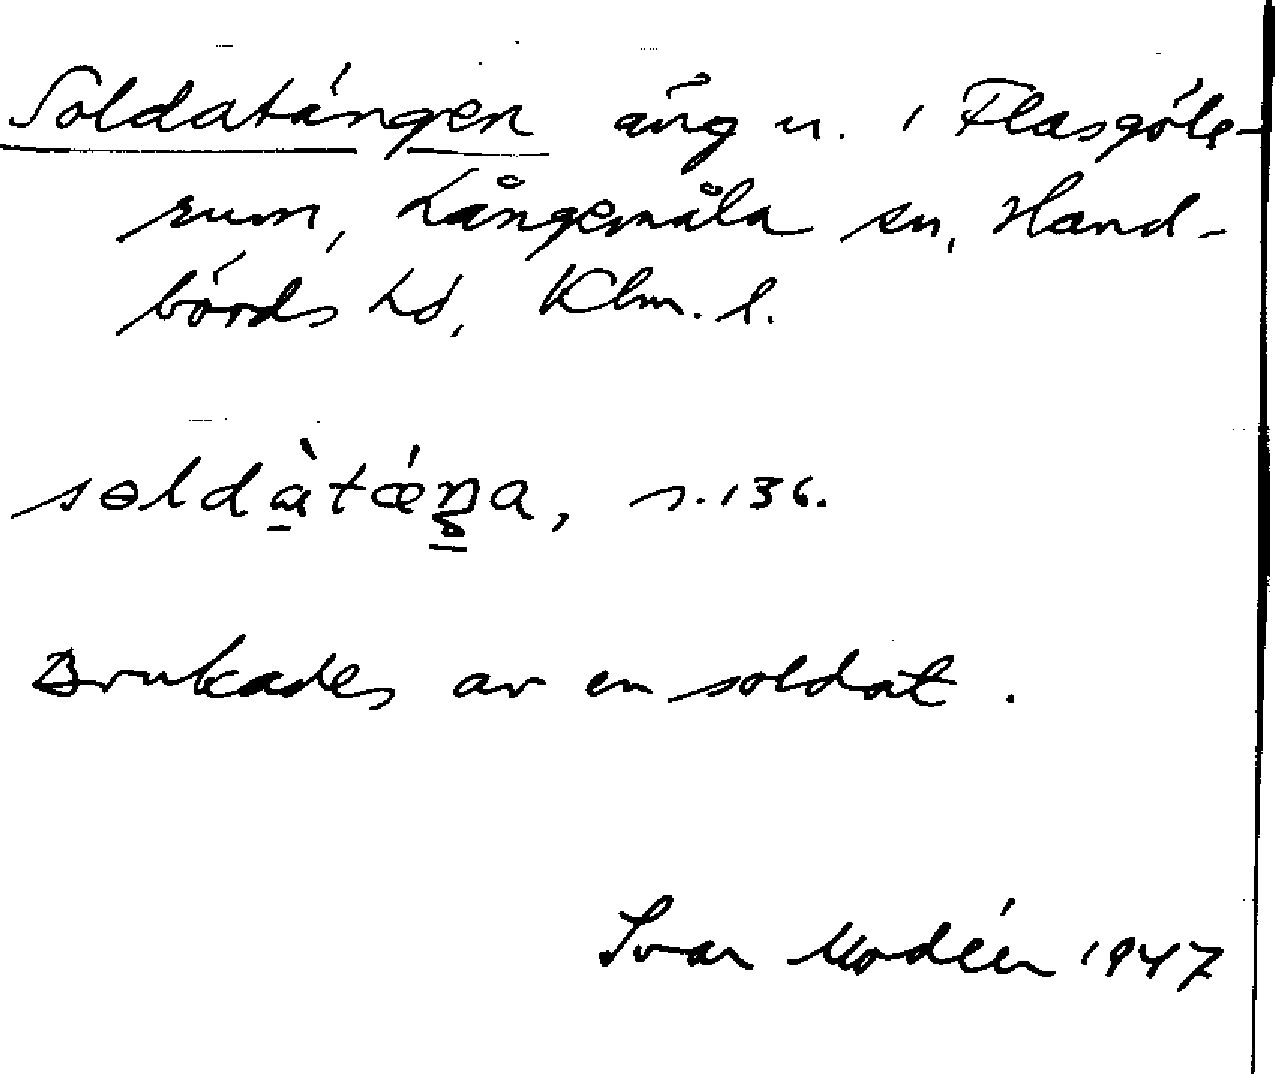 Soldatängen äng u. i Flasgöle-
rum, Långemåla sn, Hand-
börds hd, Klm. l.
səldàtǽŋa, s. 136.
Brukades av en soldat.
Ivar Modéer 1947